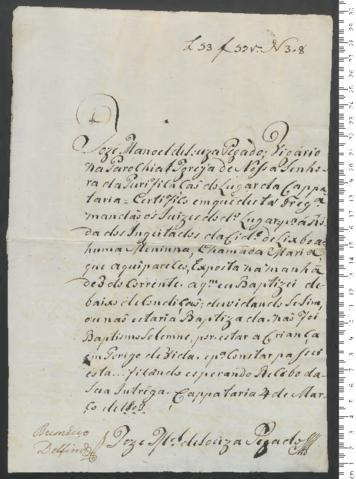 L 53 f 52v. N 3.8
Joze Manoel de Souza Pegado, Vigario
na Parochial Igreja de Nossa Senho-
ra da Purificacaõ do Lugar da Cappa-
taria = Certifico em que desta Freg.ª
mandaõ os Juizes do d.º Lugar p.ª a Ro-
da dos Ingeitados da Cid.e de Lisboa
huma Menina, Chamada Maria
que aqui pareceo, Exposta na manhã
de 3 do Corrente. a q.m eu Baptizei de-
baixo de Condiçaõ, duvidando se Sim,
ou naõ estaria Baptizada. naõ foi
Baptismo Solemne, por estar a Criança
em Perigo de Vida. e p.ª Constar passei
esta ... ficando esperando Recibo da
Sua Intrega. Cappataria 4 de Mar-
ço de
Joze M.el de Souza Pegado
Delfino